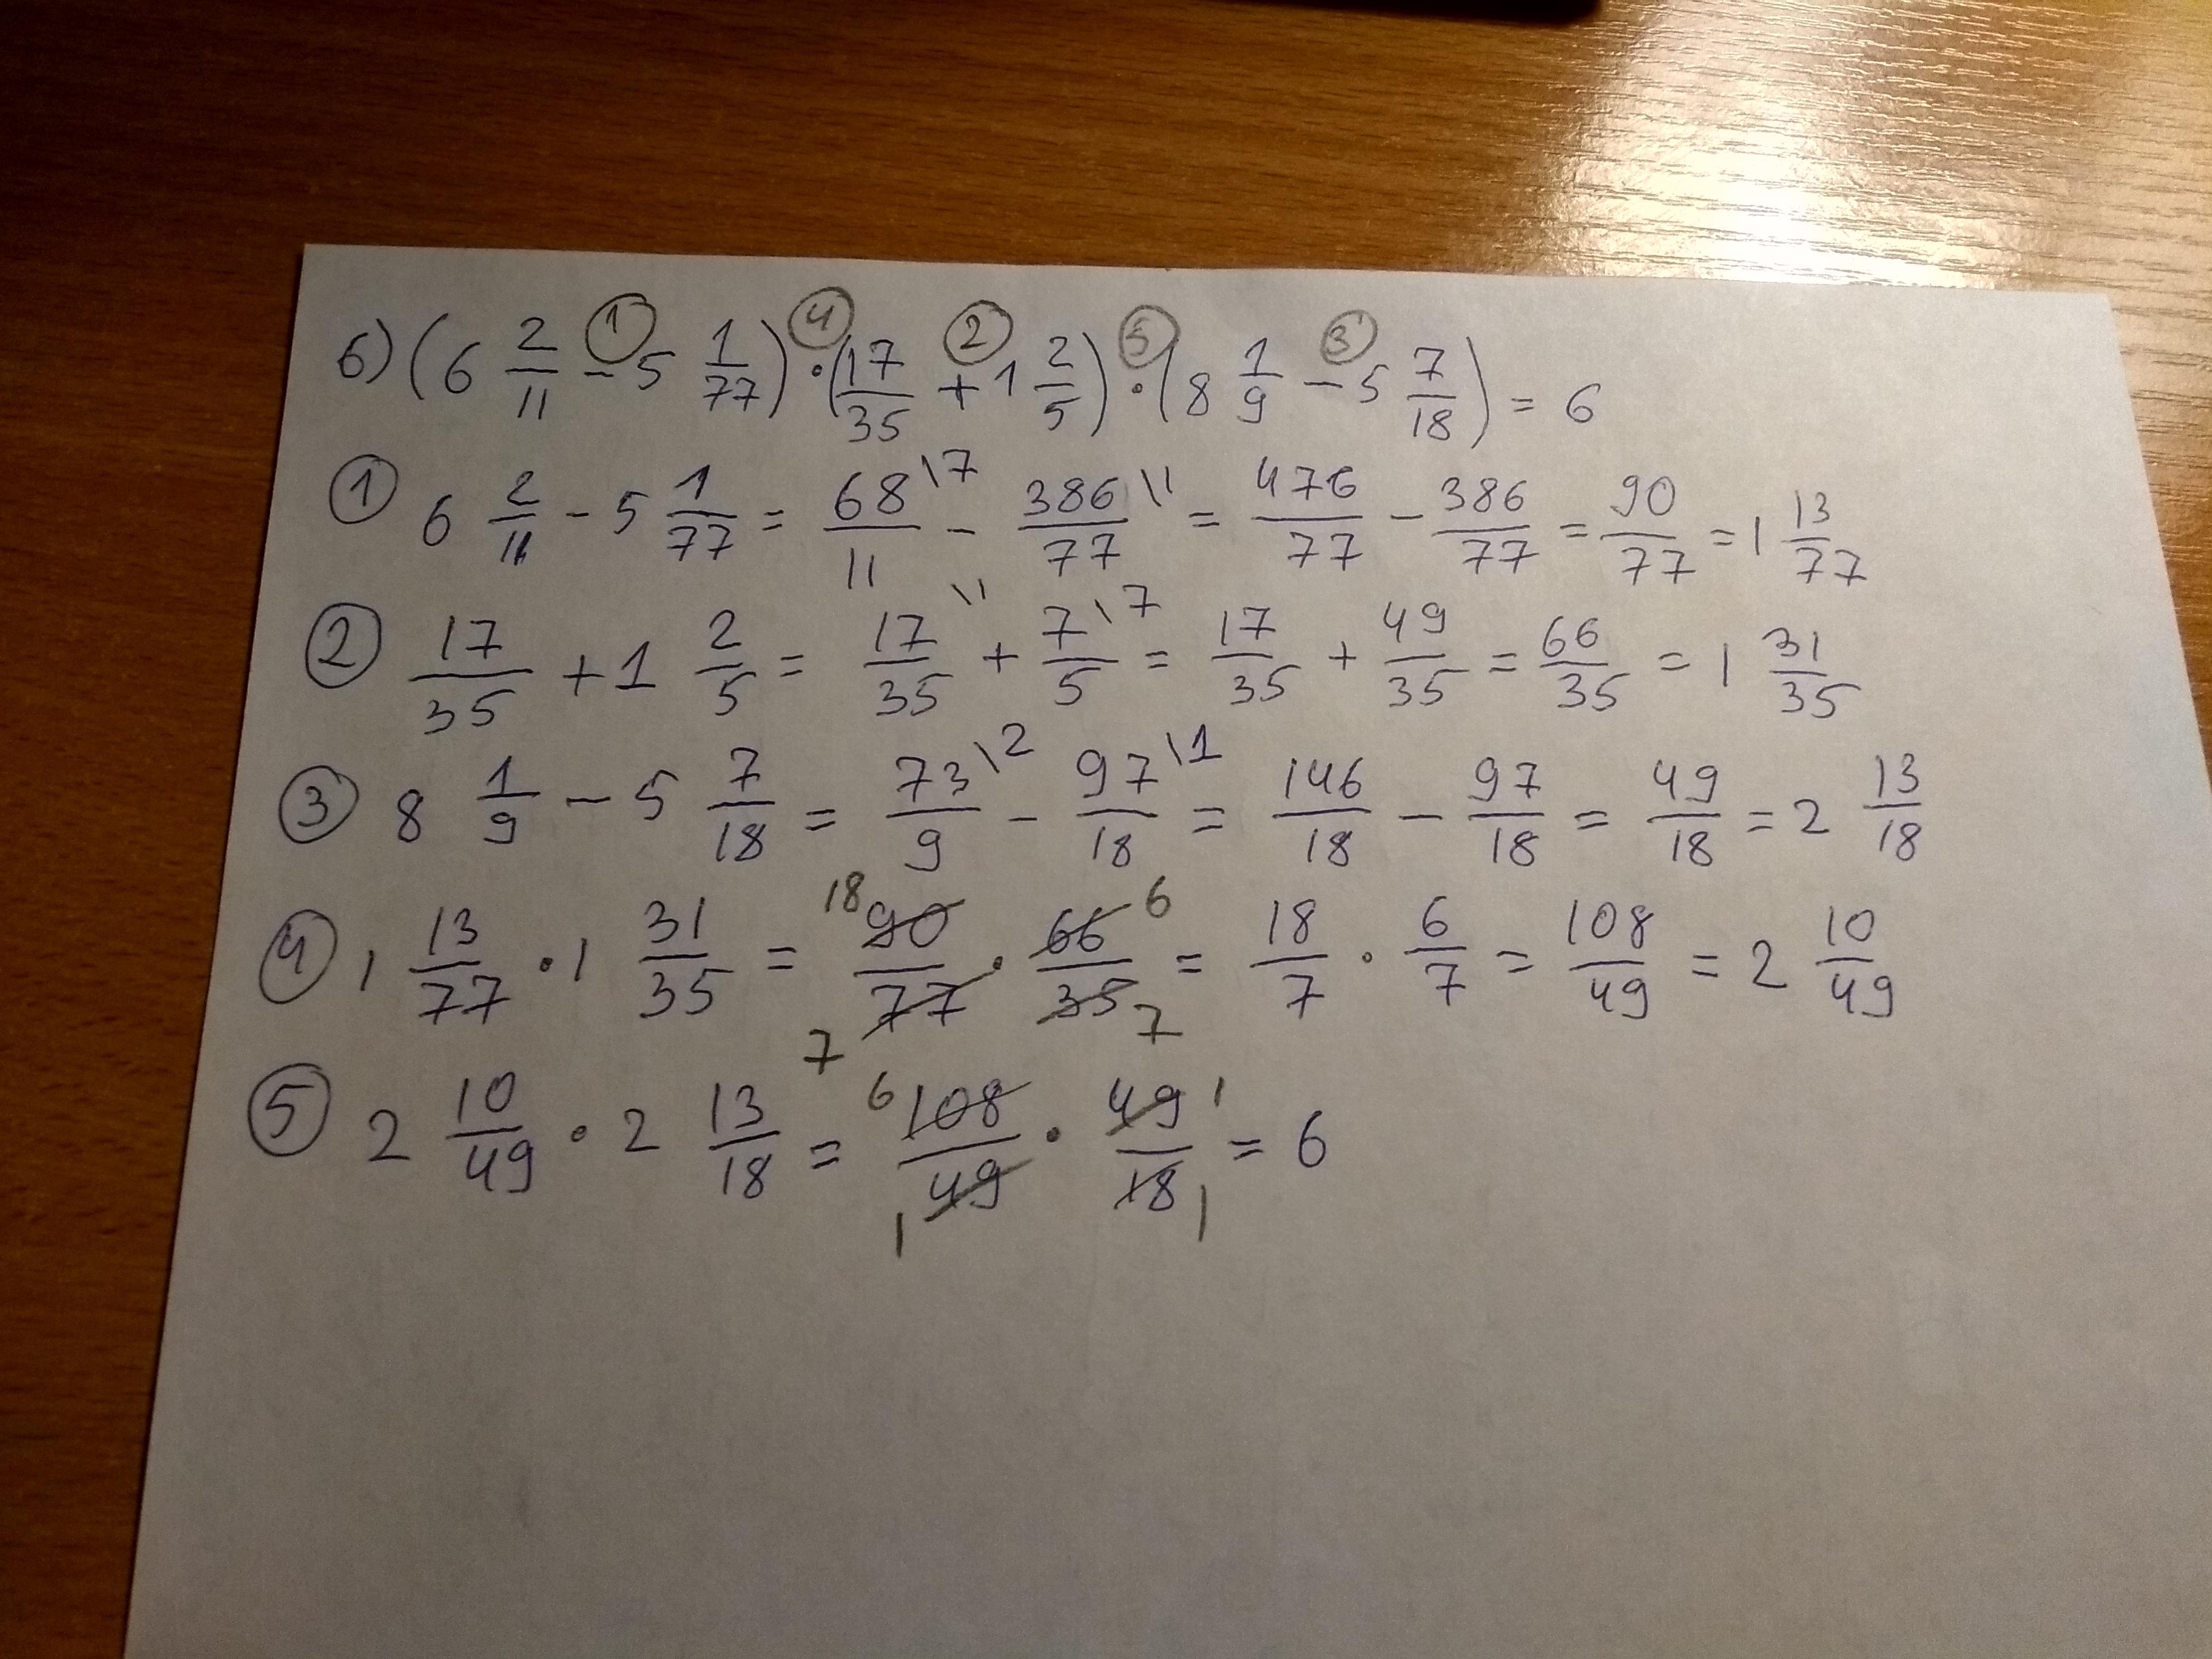 б) (6 2/11 - 5 1/77) · (17/35 + 1 2/5) · (8 1/9 - 5 7/18) = 6
① ④ ② ⑤ ③
① 6 2/11 - 5 1/77 = 68/11 \7 - 386/77 \1 = 476/77 - 386/77 = 90/77 = 1 13/77
② 17/35 + 1 2/5 = 17/35 \1 + 7/5 \7 = 17/35 + 49/35 = 66/35 = 1 31/35
③ 8 1/9 - 5 7/18 = 73/9 \2 - 97/18 \1 = 146/18 - 97/18 = 49/18 = 2 13/18
④ 1 13/77 · 1 31/35 = 18 90/77 7 · 66 6/35 7 = 18/7 · 6/7 = 108/49 = 2 10/49
⑤ 2 10/49 · 2 13/18 = 6 108/49 1 · 49 1/18 1 = 6